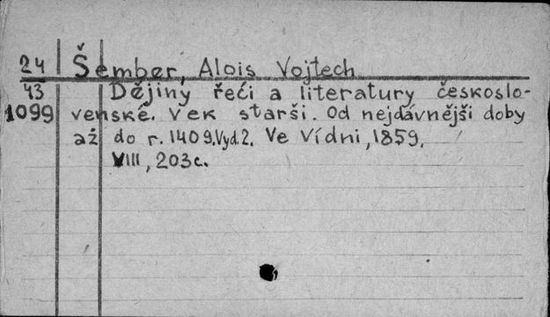 24 Šember, Alois Vojtech
43 Dějiny řeči a literatury českoslo-
1099 venské. Vek starši. Od nejdávnějši doby
až do r. 1409. Vyd. 2. Ve Vídni, 1859.
VIII, 203c.